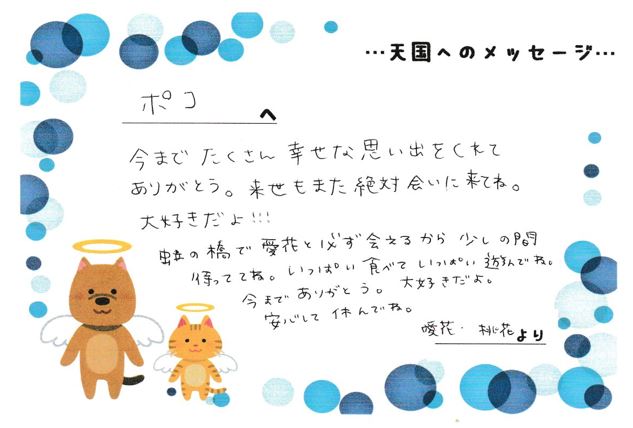 …天国へのメッセージ…
ポコ へ
今まで たくさん 幸せな思い出をくれて
ありがとう。来世もまた 絶対 会いに来てね。
大好きだよ!!!
虹の橋で 愛花と必ず会えるから 少しの間
待っててね。いっぱい 食べて いっぱい 遊んでね。
今までありがとう。 大好きだよ。
安心して 休んでね。
愛花・桃花より